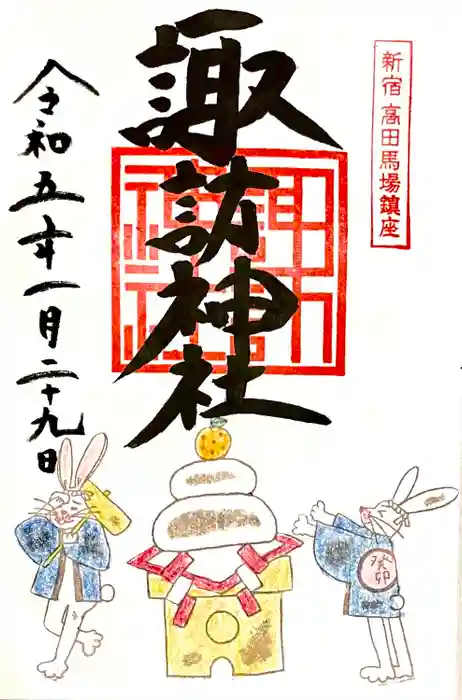 新宿高田馬場鎮座
諏訪神社
令和五年一月二十九日
癸卯